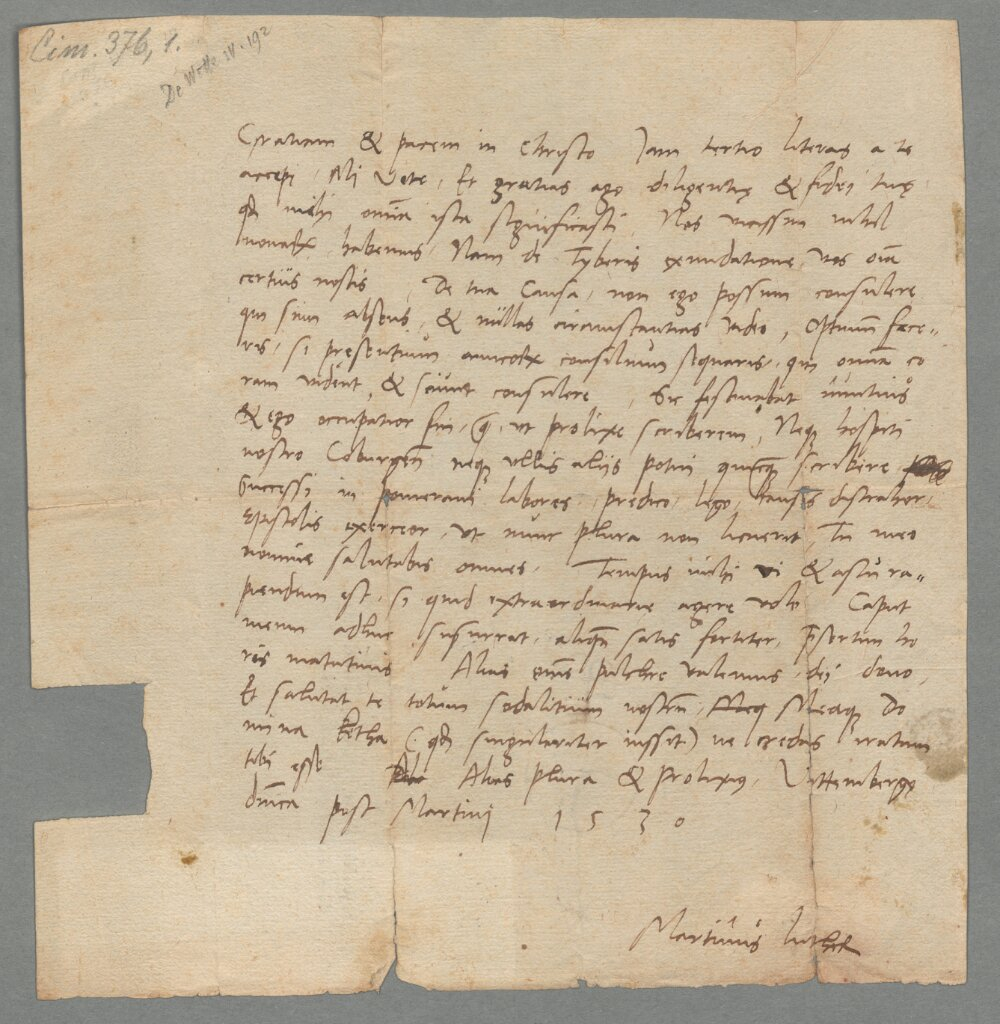 Cim. 376, 1.
De Wette IV. 192
Gratiam & pacem in Christo Jam tertio literas a te
accepi, Mi Vite, Et gratias ago diligentię & fidei tuę
q̃ mihi om̃ia ista significasti, Nos vicissim nihil
habemus, Nam de Tyberis exundatione, vos oĩa
certius nostis, De tua Causa, non ego possum consulere
qui sim absens, & nullas circumstantias video, Optimũ fece-
ris, si pręsentium consilium sequaris, qui omnia co
ram vident, & sciunt consulere, Sic festinabat nuntius
& ego occupatior sum, ut prolixe scriberem, Neq hospiti
nostro Coburgeñ neq ullis aliis potui scribere
Successi in pomerani labores, predico, lego, causis distrahor,
Epistolis exerceor, ut nunc plura non licuerit, Tu meo
nomine salutabis omnes, Tempus mihi vi & astu ra-
piendum est, si quid extraordinarie agere volo Caput
meum adhuc susurrat, aliqñ satis fortiter, p̃sertim ho
ris matutinis Alias om̃s pulchre valemus, dei dono,
Et salutat te totum sodalitium nostrũ, Meaq Do
mina Ketha (q̃ singulariter iussit) ne credas iratam
tibi esse Alias plura & prolixius, Vittembergę
dm̃ica post Martini 1530
Martinus Luther